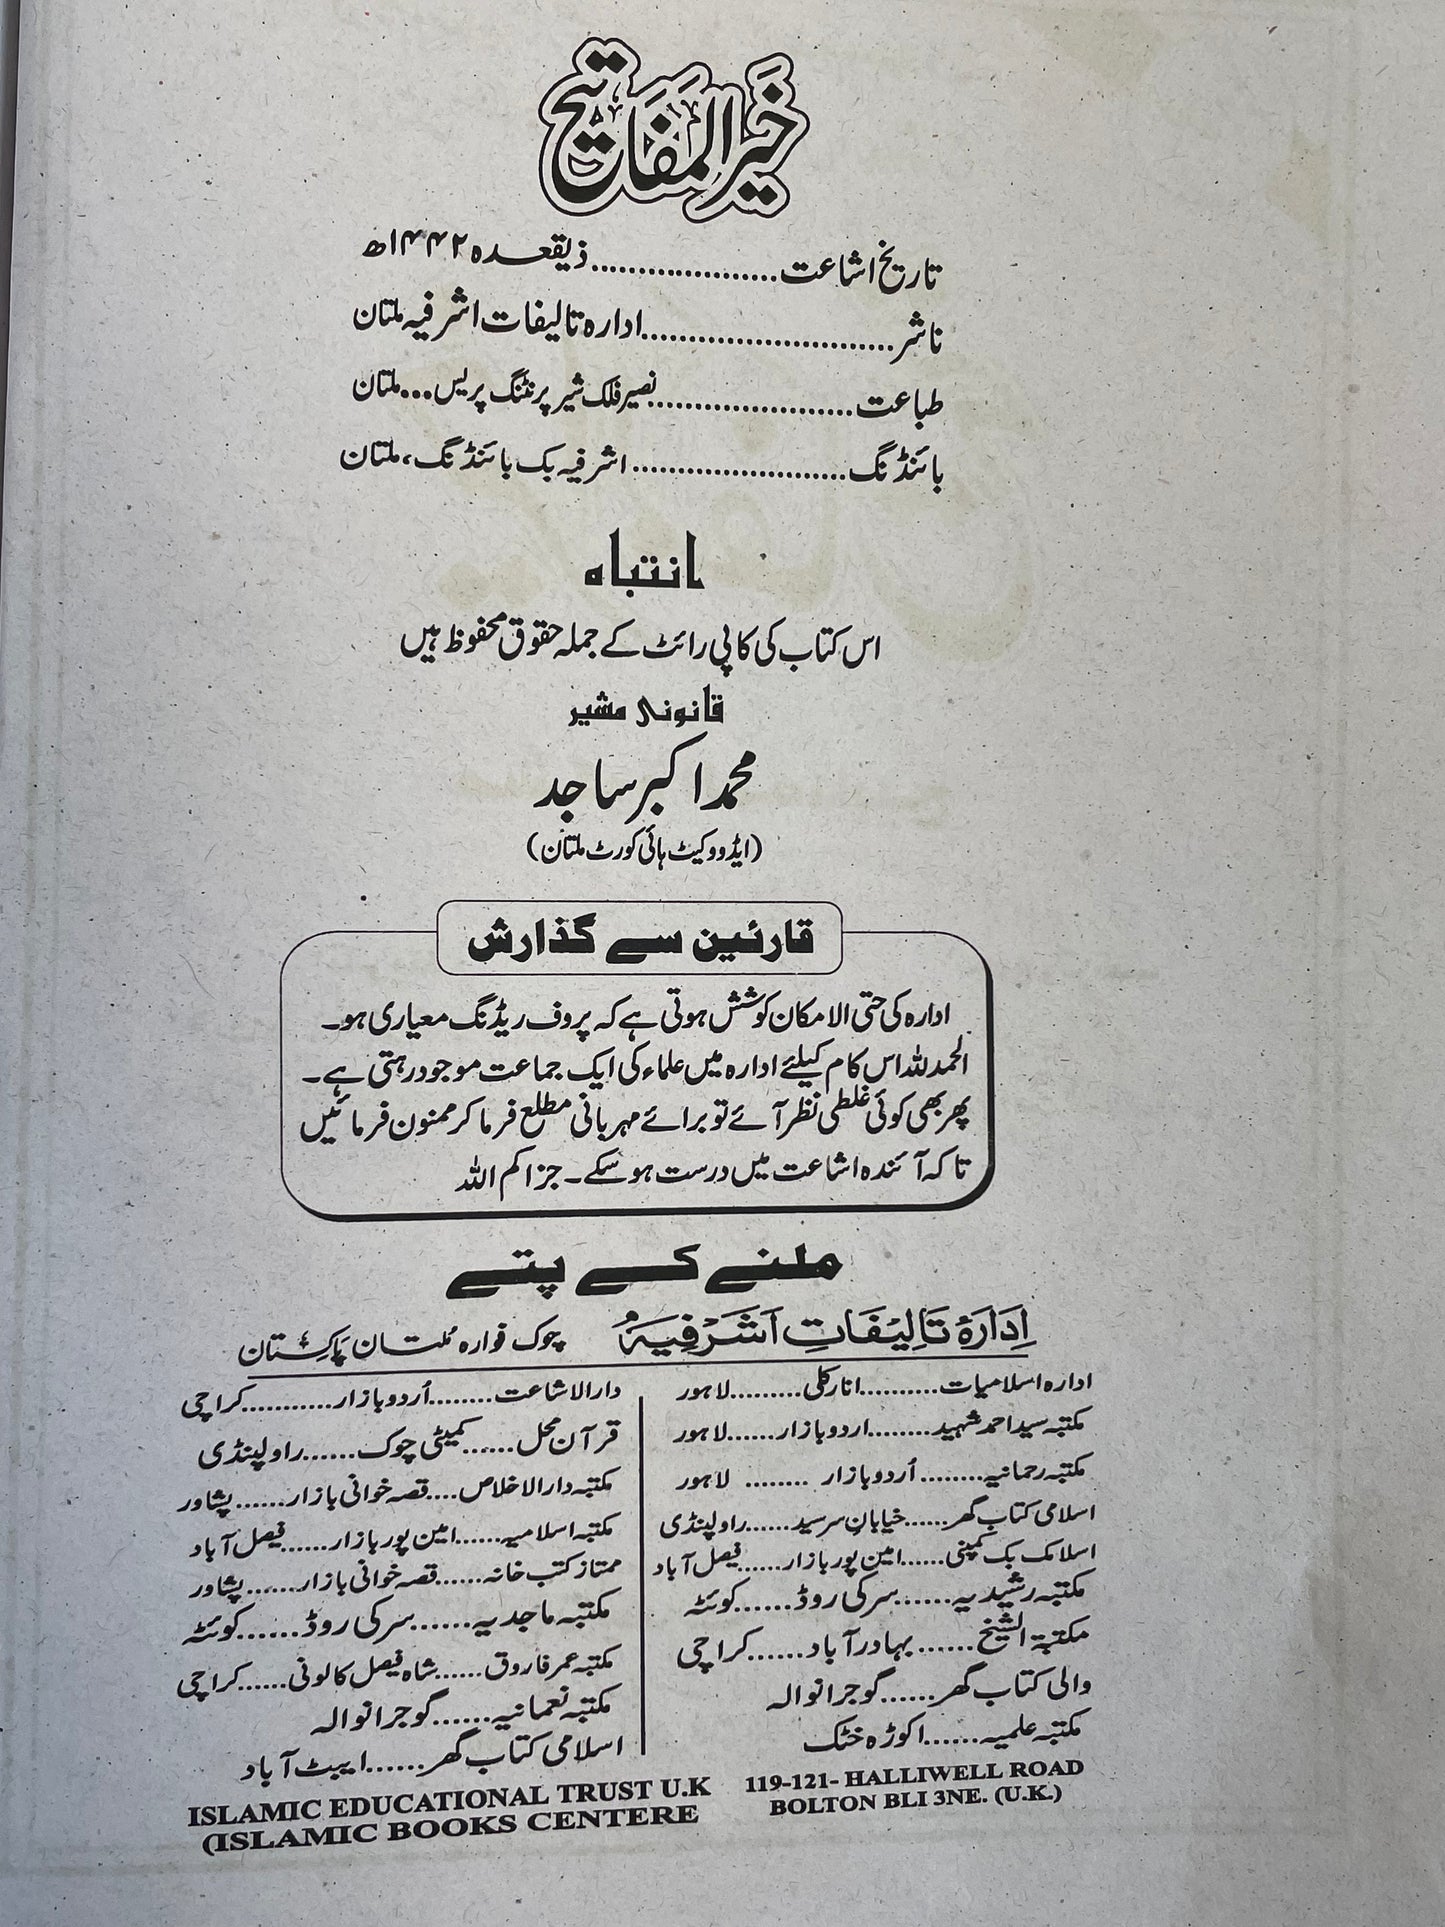 خَیرُ المَفَاتِیح
تاریخ اشاعت....................ذیقعدہ ۱۴۴۲ھ
ناشر..........................ادارہ تالیفات اشرفیہ ملتان
طباعت......................نصیر فلک شیر پرنٹنگ پریس...ملتان
بائنڈنگ.......................اشرفیہ بک بائنڈنگ، ملتان
انتباہ
اس کتاب کی کاپی رائٹ کے جملہ حقوق محفوظ ہیں
قانونی مشیر
محمد اکبر ساجد
(ایڈووکیٹ ہائی کورٹ ملتان)
قارئین سے گذارش
ادارہ کی حتی الامکان کوشش ہوتی ہے کہ پروف ریڈنگ معیاری ہو۔
الحمدللہ اس کام کیلئے ادارہ میں علماء کی ایک جماعت موجود رہتی ہے۔
پھر بھی کوئی غلطی نظر آئے تو برائے مہربانی مطلع فرما کر ممنون فرمائیں
تاکہ آئندہ اشاعت میں درست ہو سکے۔ جزاکم اللہ
ملنے کے پتے
اِدَارَۂ تَالِیْفَاتِ اَشَرْفِیَہٗ چوک فوارہ مُلتان پَاکِستان
ادارہ اسلامیات..........انارکلی.........لاہور
مکتبہ سید احمد شہید........اردو بازار......لاہور
مکتبہ رحمانیہ........اُردو بازار ......... لاہور
اسلامی کتاب گھر......خیابان سرسید......راولپنڈی
اسلامک بک کمپنی......امین پور بازار......فیصل آباد
مکتبہ رشیدیہ......سرکی روڈ......کوئٹہ
مکتبۃ الشیخ......بہادر آباد......کراچی
والی کتاب گھر......گوجرانوالہ
مکتبہ علمیہ......اکوڑہ خٹک
دارالاشاعت........اُردو بازار...........کراچی
قرآن محل......کمیٹی چوک......راولپنڈی
مکتبہ دارالاخلاص....قصہ خوانی بازار......پشاور
مکتبہ اسلامیہ......امین پور بازار......فیصل آباد
ممتاز کتب خانہ......قصہ خوانی بازار......پشاور
مکتبہ ماجدیہ......سرکی روڈ......کوئٹہ
مکتبہ عمر فاروق......شاہ فیصل کالونی......کراچی
مکتبہ نعمانیہ......گوجرانوالہ
اسلامی کتاب گھر......ایبٹ آباد
ISLAMIC EDUCATIONAL TRUST U.K
(ISLAMIC BOOKS CENTERE
119-121- HALLIWELL ROAD
BOLTON BLI 3NE. (U.K.)